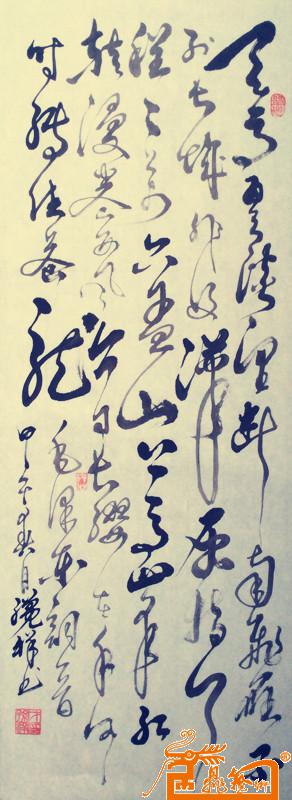 天高雲淡望断南飛雁不
到长城非好漢屈指行
程二万六盘山上高峰红
旗漫卷西风今日长缨在手何
时缚住苍龙
毛泽东词一首
甲午年春月